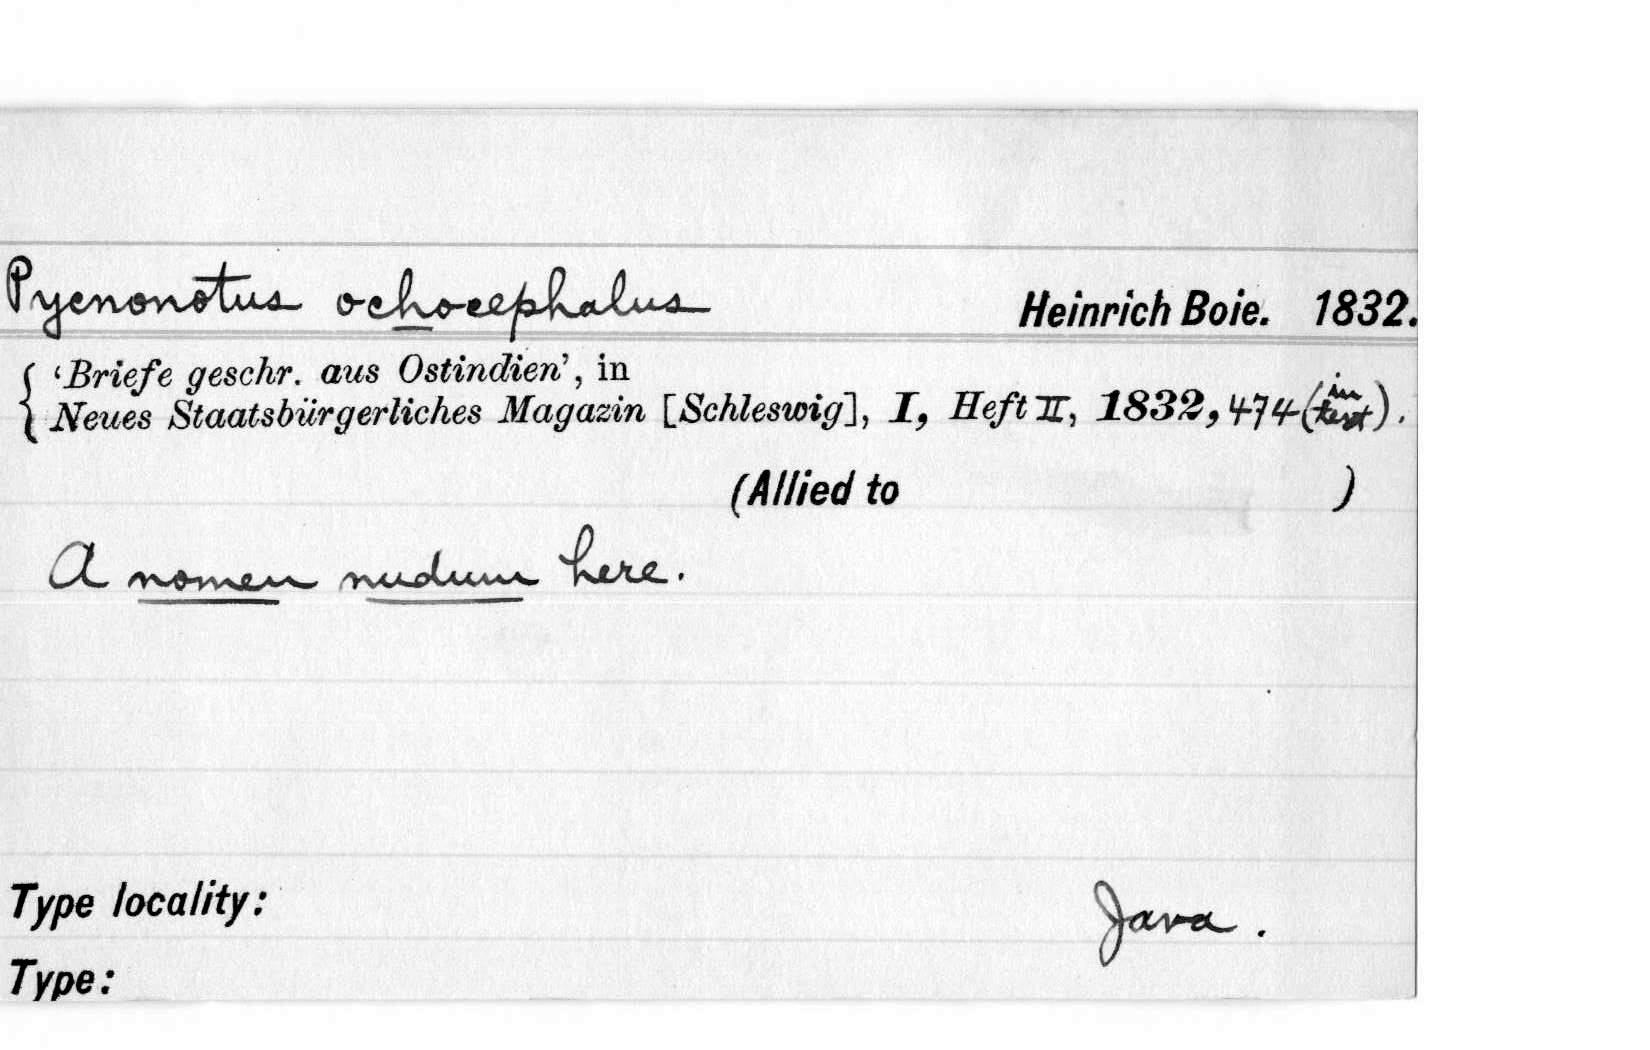 Pycnonotus ochocephalus Heinrich Boie. 1832.
'Briefe geschr. aus Ostindien', in
Neues Staatsbürgerliches Magazin [Schleswig], I, Heft II, 1832, 474 (in text).
(Allied to )
A nomen nudum here.
Type locality: Java.
Type: